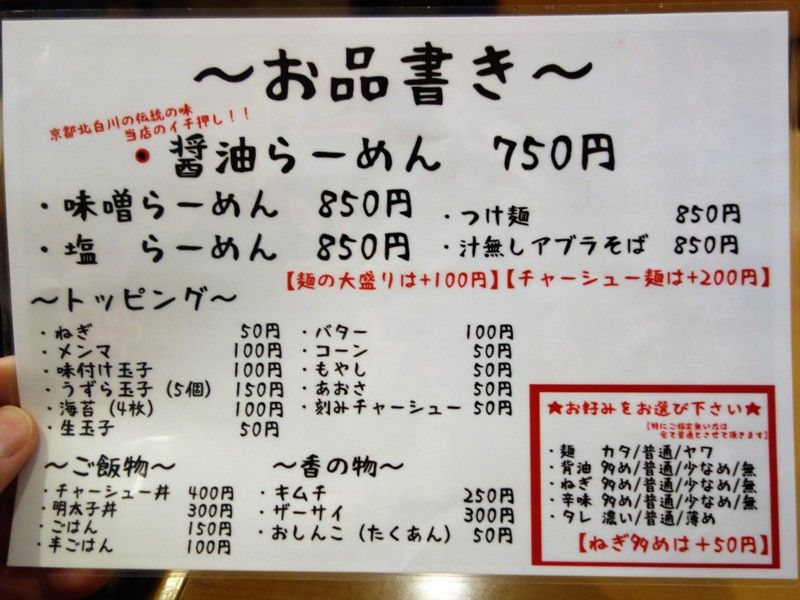 ～お品書き～
京都北白川の伝統の味
当店のイチ押し！！
・醤油らーめん 750円
・味噌らーめん 850円
・塩 らーめん 850円
・つけ麺 850円
・汁無しアブラそば 850円
【麺の大盛りは+100円】【チャーシュー麺は+200円】
～トッピング～
・ねぎ 50円
・メンマ 100円
・味付け玉子 100円
・うずら玉子（5個） 150円
・海苔（4枚） 100円
・生玉子 50円
・バター 100円
・コーン 50円
・もやし 50円
・あおさ 50円
・刻みチャーシュー 50円
～ご飯物～
・チャーシュー丼 400円
・明太子丼 300円
・ごはん 150円
・半ごはん 100円
～香の物～
・キムチ 250円
・ザーサイ 300円
・おしんこ（たくあん） 50円
★お好みをお選び下さい★
【特にご指定無い方は
全て普通とさせて頂きます】
・麺 カタ/普通/ヤワ
・背油 多め/普通/少なめ/無
・ねぎ 多め/普通/少なめ/無
・辛味 多め/普通/少なめ/無
・タレ 濃い/普通/薄め
【ねぎ多めは＋50円】